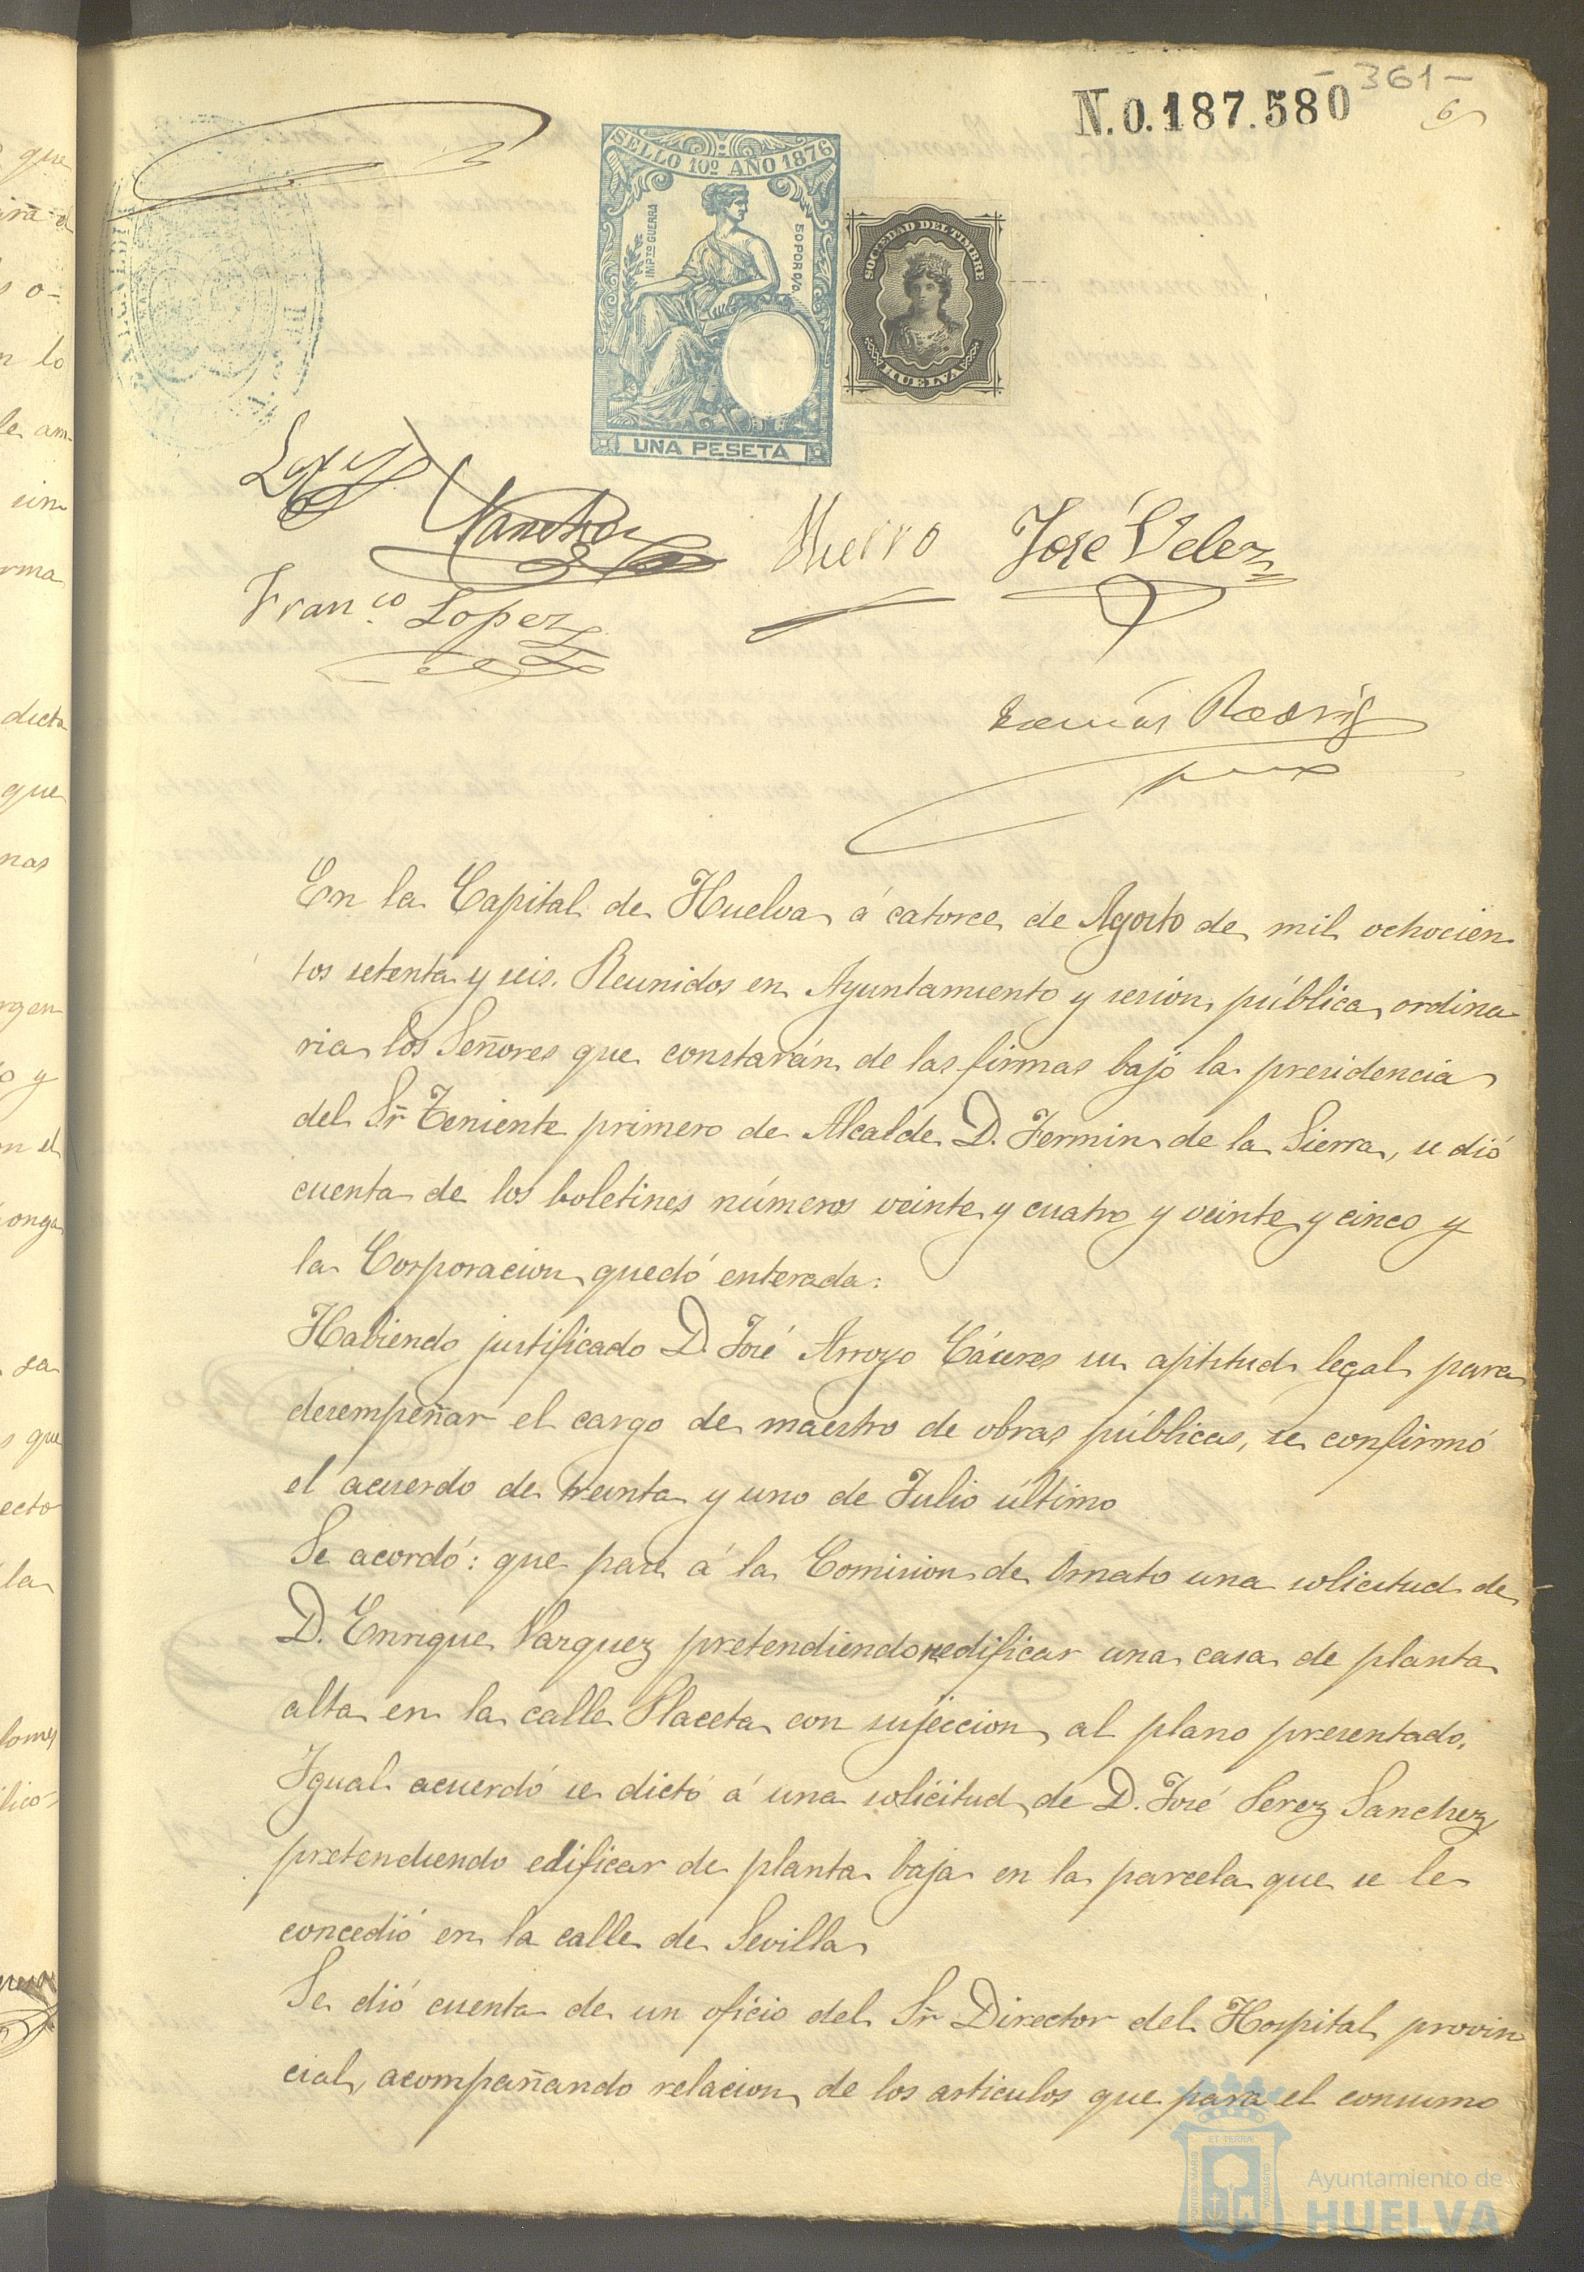 - 361 -
N.0.187.580
6
SELLO 10º AÑO 1876
IMPTO GUERRA
50 POR 0/0
UNA PESETA
SOCIEDAD DEL TIMBRE
HUELVA
Sanchez
Hierro
José Velez
Franco. Lopez
Tomás Rodrig
En la Capital de Huelva á catorce de Agosto de mil ochocien
tos setenta y seis. Reunidos en Ayuntamiento y sesion pública ordina
ria los Señores que constarán de las firmas bajo la presidencia
del Sr Teniente primero de Alcalde D. Fermin de la Sierra, se dió
cuenta de los boletines números veinte y cuatro y veinte y cinco y
la Corporacion quedó enterada:
Habiendo justificado D. José Arroyo Cáceres su aptitud legal para
desempeñar el cargo de maestro de obras públicas, se confirmó
el acuerdo de treinta y uno de Julio último
Se acordó: que pase á la Comision de Ornato una solicitud de
D. Enrique Vazquez pretendiendo reedificar una casa de planta
alta en la calle Placeta con sujeccion al plano presentado.
Igual acuerdó se dictó á una solicitud de D. José Perez Sanchez
pretendiendo edificar de planta baja en la parcela que se le
concedió en la calle de Sevilla
Se dió cuenta de un oficio del Sr Director del Hospital provin
cial, acompañando relacion de los articulos que para el consumo
Ayuntamiento de
HUELVA